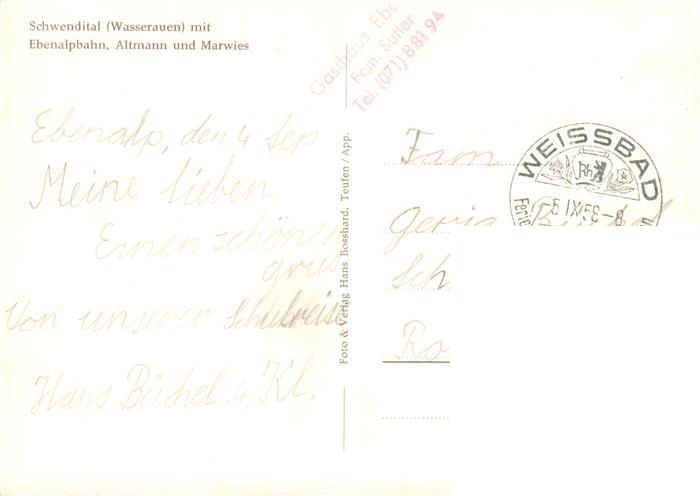 Schwendital (Wasserauen) mit
Ebenalpbahn, Altmann und Marwies
Gasthaus Ebe
Fam. Sutter
Tel. (071) 881 94
Ebenalp, den 4 Sep
Meine lieben
Einen schönen
grus
Von unserer Schulreise
Hans Büchel. 4. Kl.
Foto & Verlag Hans Bosshard, Teufen / App.
Fam
Sch
Ro
WEISSBAD
-5 IX 58-8
Ferie